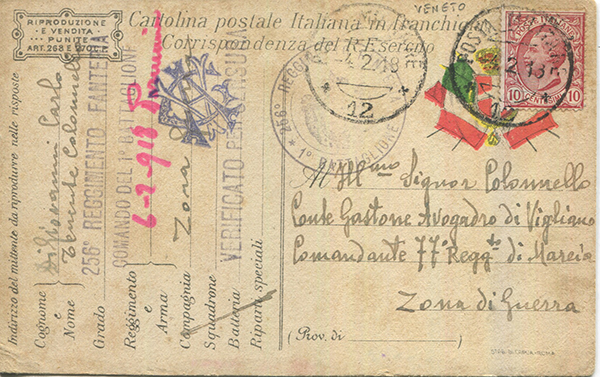 VENETO
RIPRODUZIONE
E VENDITA
PUNITE
ART. 268 E 270
Cartolina postale Italiana in franchigia
Corrispondenza del R. Esercito
POSTE ITALIANE
10 CENTESIMI 10
POSTA
4.2.18
12
12
256° REGGI
1° BATTAGLIONE
Ill.mo Signor Colonnello
Conte Gastone Avogadro di Vigliano
Comandante 77° Regg.to di Marcia
Zona di Guerra
(Prov. di
Indirizzo del mittente da riprodurre nelle risposte
Cognome
e
Nome
Grado
Reggimento
e
Arma
Compagnia
Squadrone
Batteria
Riparti speciali
Giovanni Carlo
Tenente Colonnello
256° REGGIMENTO FANTERIA
COMANDO DEL 1° BATTAGLIONE
6-2-918
Zona
VERIFICATO PER CENSURA